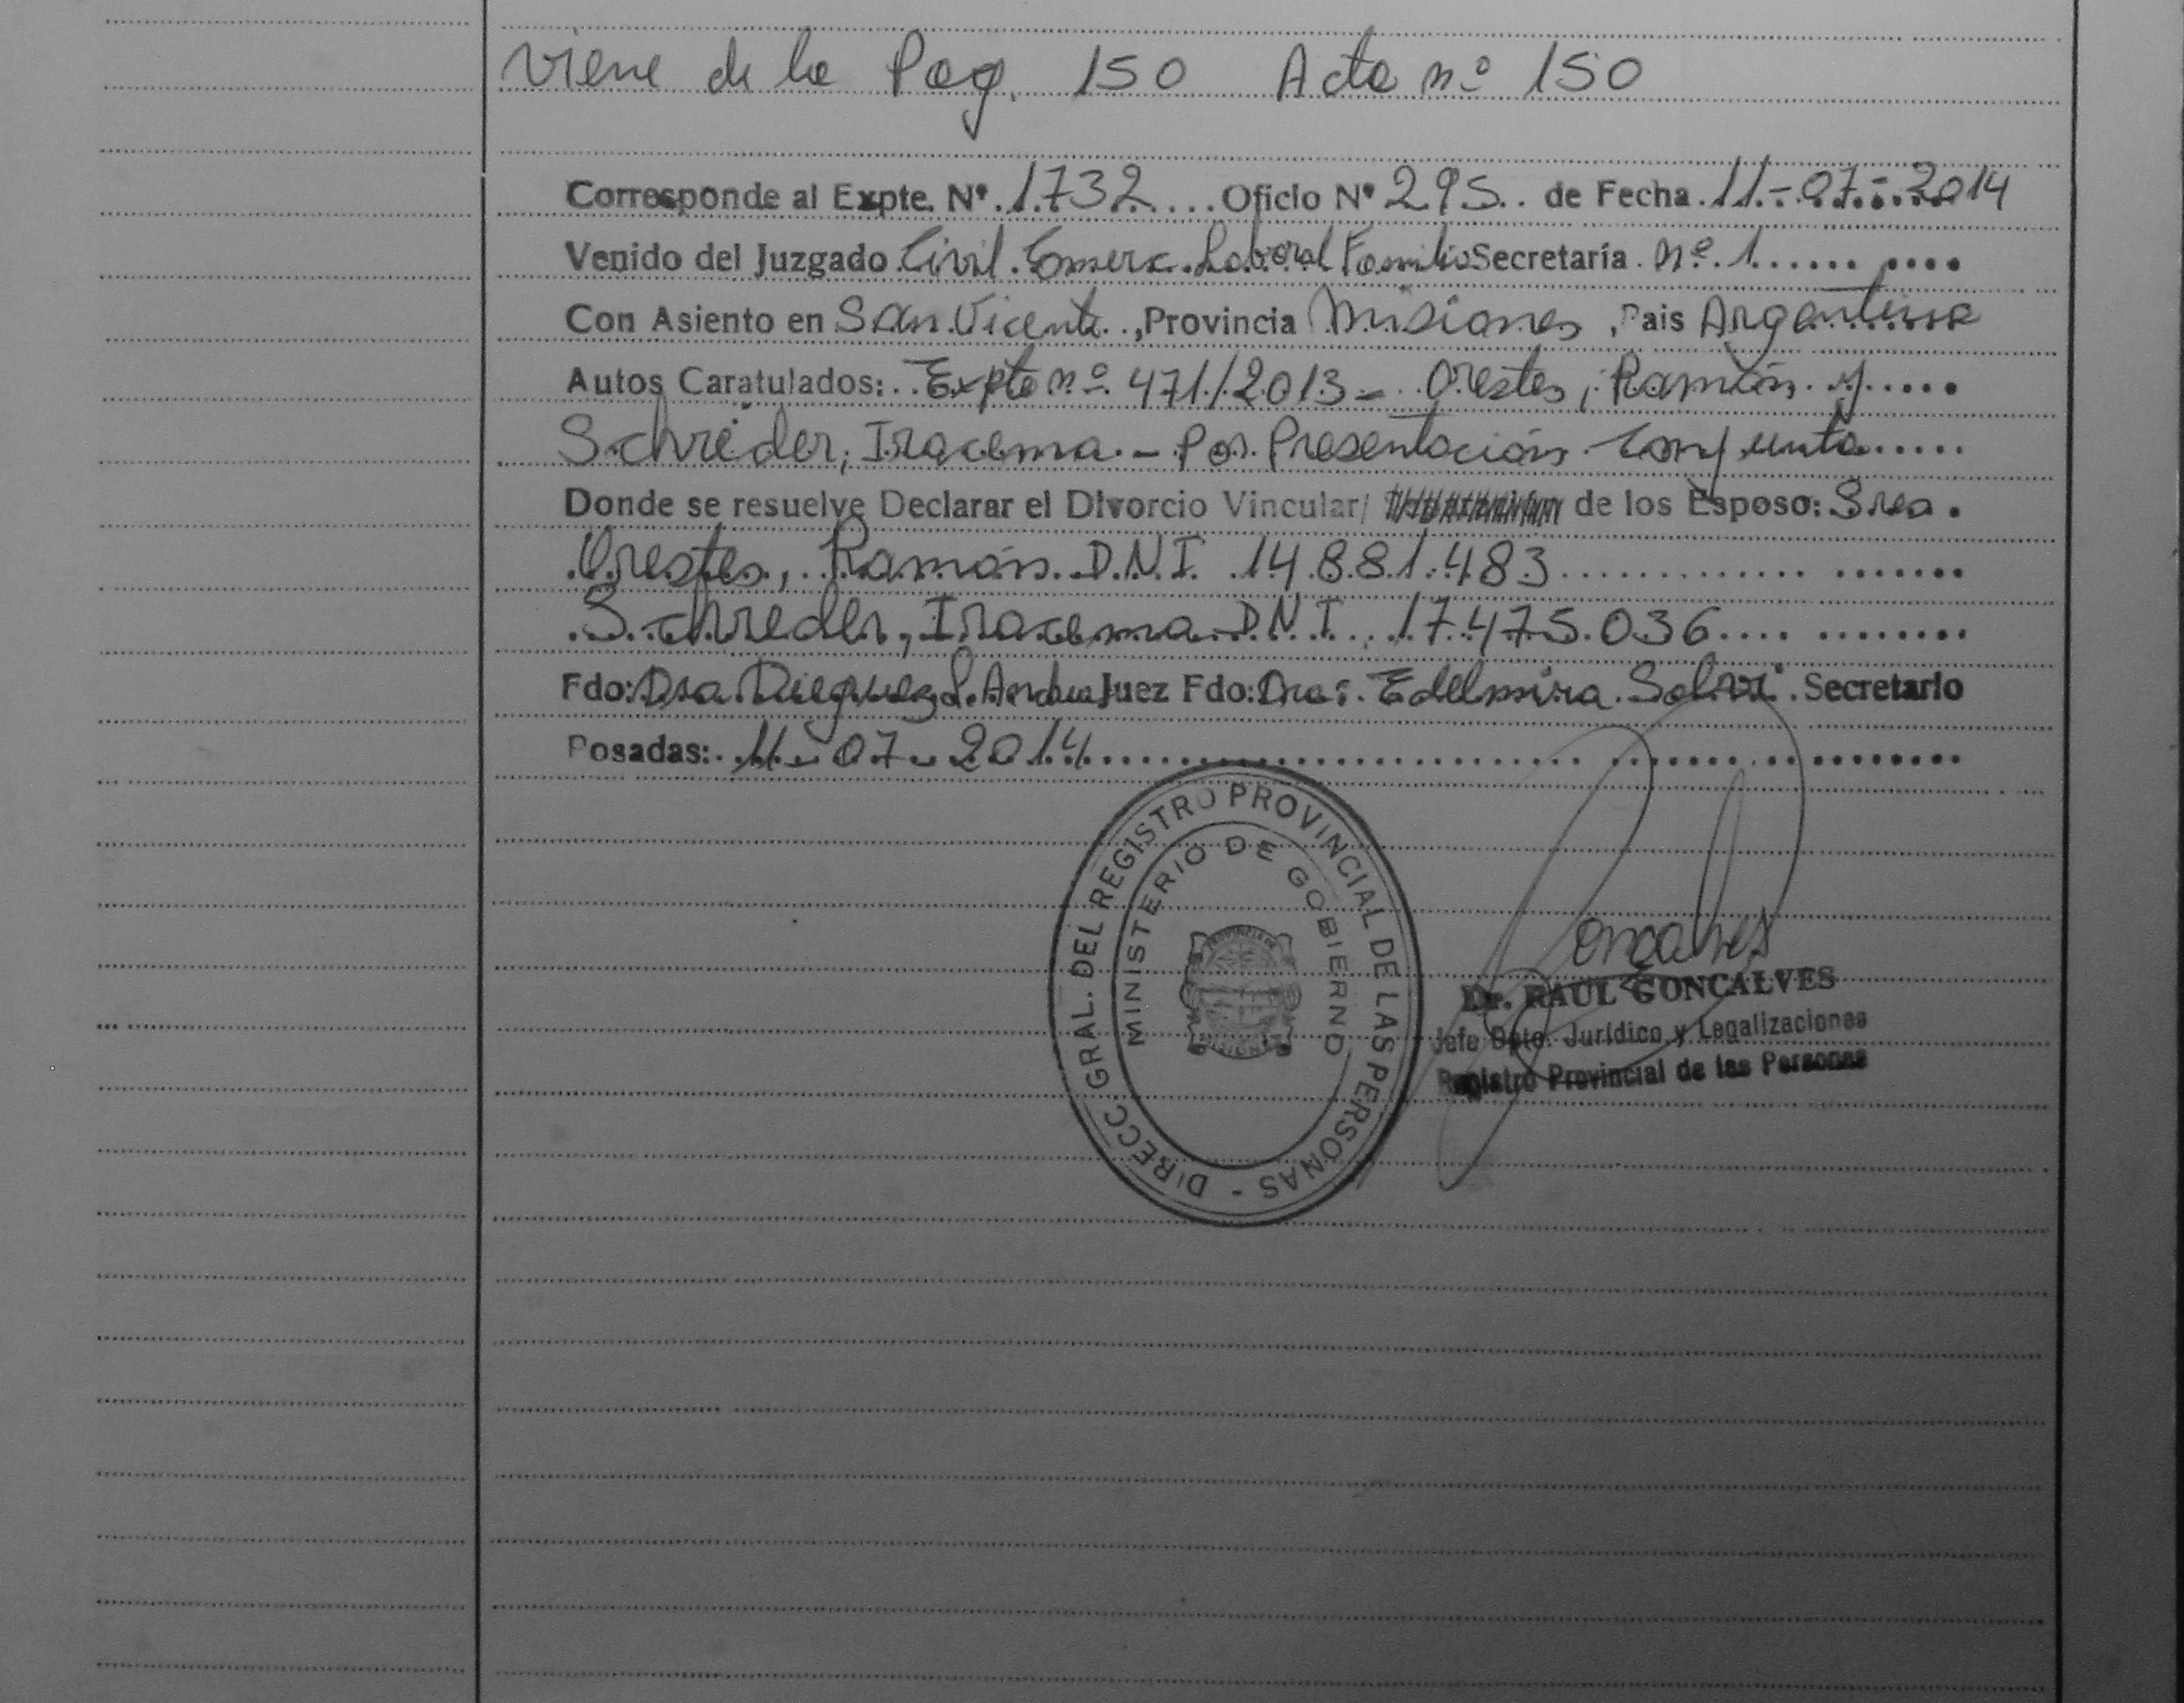 Viene de la Pag. 150 Acta nº 150
Corresponde al Expte. Nº 1732 Oficio Nº 295 de Fecha 11-07-2014
Venido del Juzgado Civil Comerc. Laboral Familia Secretaría nº 1
Con Asiento en San Vicente, Provincia Misiones, Pais Argentina
Autos Caratulados: Expte nº 471/2013 - Orestes, Ramón y
Schreder, Iracema - Por Presentación Conjunta
Donde se resuelve Declarar el Divorcio Vincular/ de los Esposo: Sres.
Orestes, Ramón D.N.I. 14.881.483
Schreder, Iracema D.N.I. 17.475.036
Fdo: Dra. Dieguez L. Andrea Juez Fdo: Dra. Edelmira Salvi. Secretario
Posadas: 11-07-2014
DIRECC. GRAL. DEL REGISTRO PROVINCIAL DE LAS PERSONAS -
MINISTERIO DE GOBIERNO
PROVINCIA DE
MISIONES
Goncalves
Dr. RAUL GONCALVES
Jefe Dpto. Jurídico y Legalizaciones
Registro Provincial de las Personas